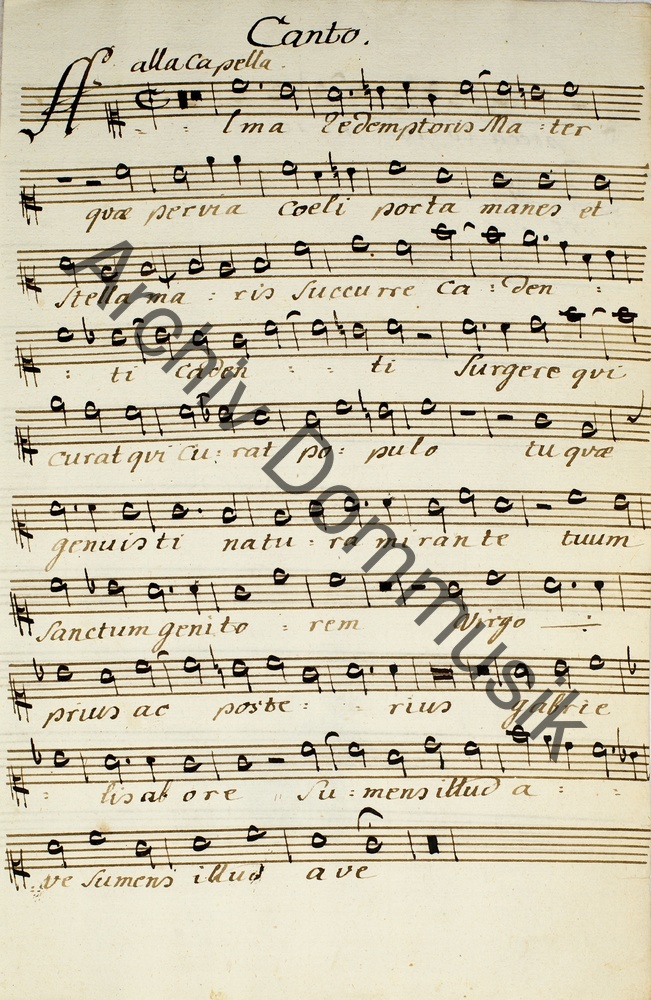 Canto.
alla Capella.
A : : lma Redemptoris Ma : ter
quæ pervia Coeli porta manes et
Stella ma : ris Succurre Ca : den :
: ti Caden : : ti Surgere qui
Curat qui Cu : rat po : pulo tu quæ
genuisti natu : ra mirante tuum
Sanctum genito : rem Virgo
prius ac poste : : rius gabrie
: lis ab ore Su : mens illud a : : :
ve Sumens illud ave
Archiv Dommusik